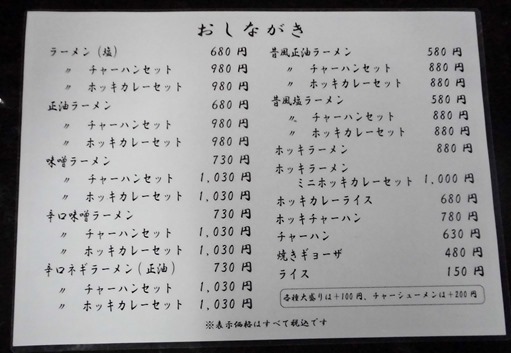 おしながき
ラーメン(塩) 680円
〃 チャーハンセット 980円
〃 ホッキカレーセット 980円
正油ラーメン 680円
〃 チャーハンセット 980円
〃 ホッキカレーセット 980円
味噌ラーメン 730円
〃 チャーハンセット 1,030円
〃 ホッキカレーセット 1,030円
辛口味噌ラーメン 730円
〃 チャーハンセット 1,030円
〃 ホッキカレーセット 1,030円
辛口ネギラーメン(正油) 730円
〃 チャーハンセット 1,030円
〃 ホッキカレーセット 1,030円
昔風正油ラーメン 580円
〃 チャーハンセット 880円
〃 ホッキカレーセット 880円
昔風塩ラーメン 580円
〃 チャーハンセット 880円
〃 ホッキカレーセット 880円
ホッキラーメン 880円
ホッキラーメン
ミニホッキカレーセット 1,000円
ホッキカレーライス 680円
ホッキチャーハン 780円
チャーハン 630円
焼きギョーザ 480円
ライス 150円
各種大盛りは+100円、チャーシューメンは+200円
※表示価格はすべて税込です